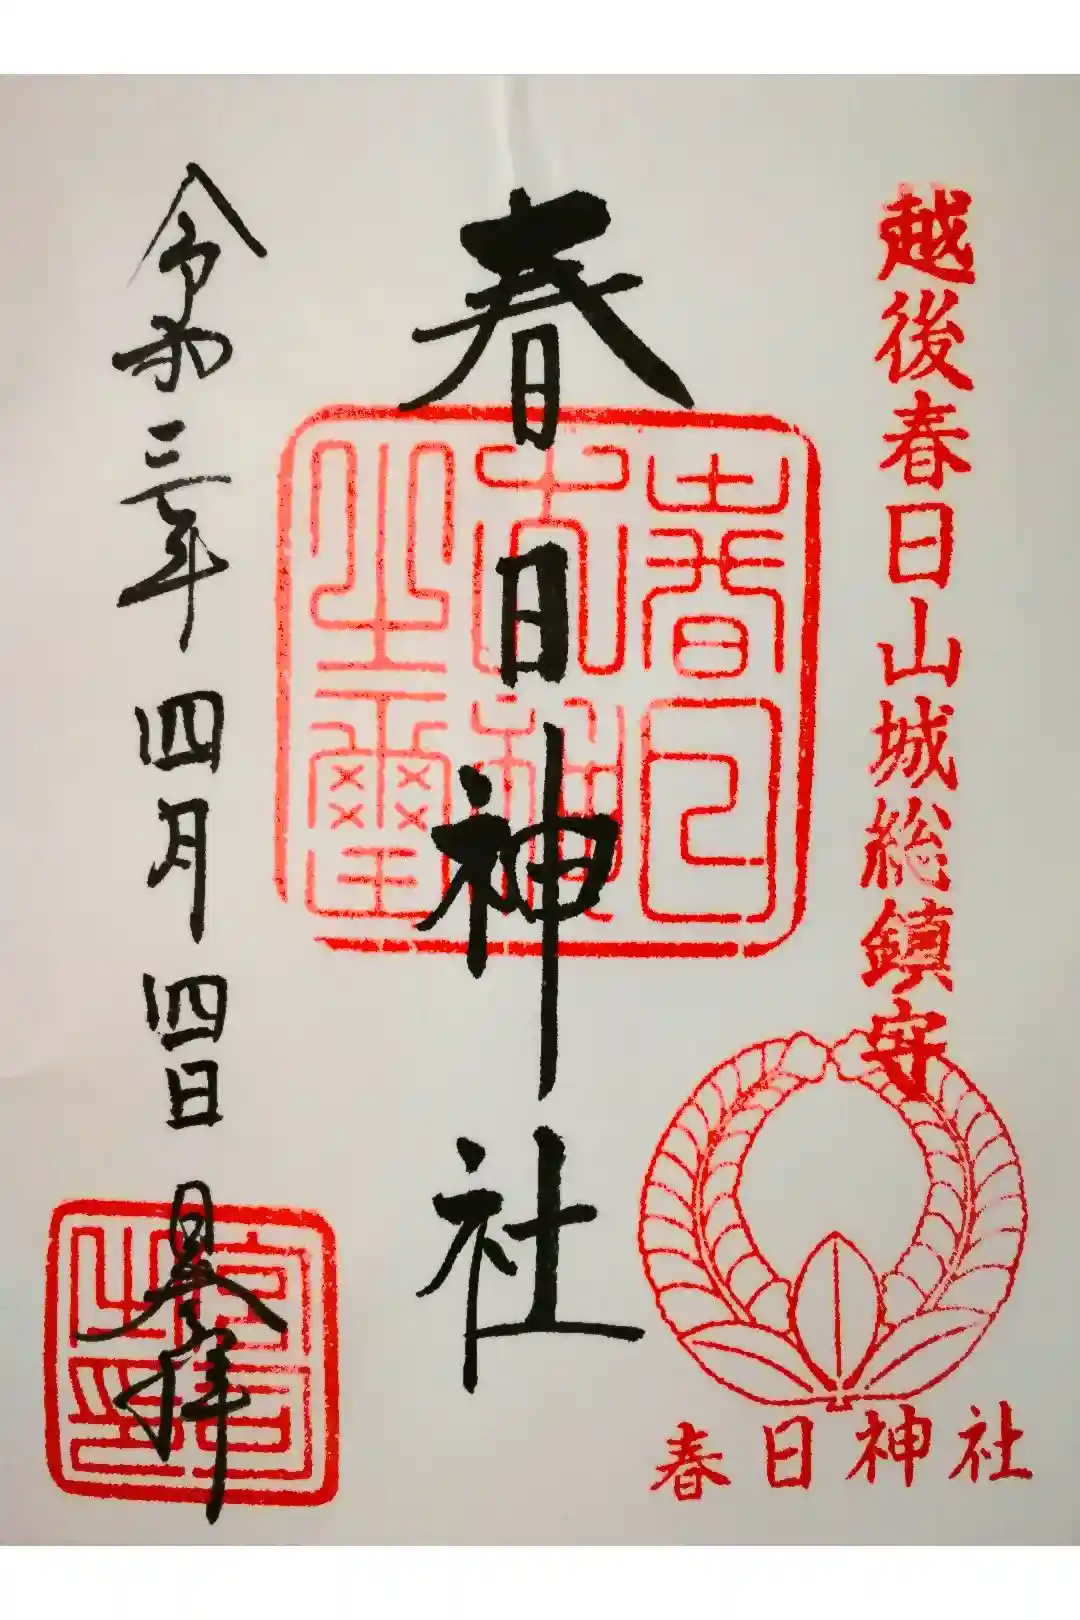 越後春日山城総鎮守
春日神社
春日神社
春日大神之璽
令和三年四月四日
宮司之印